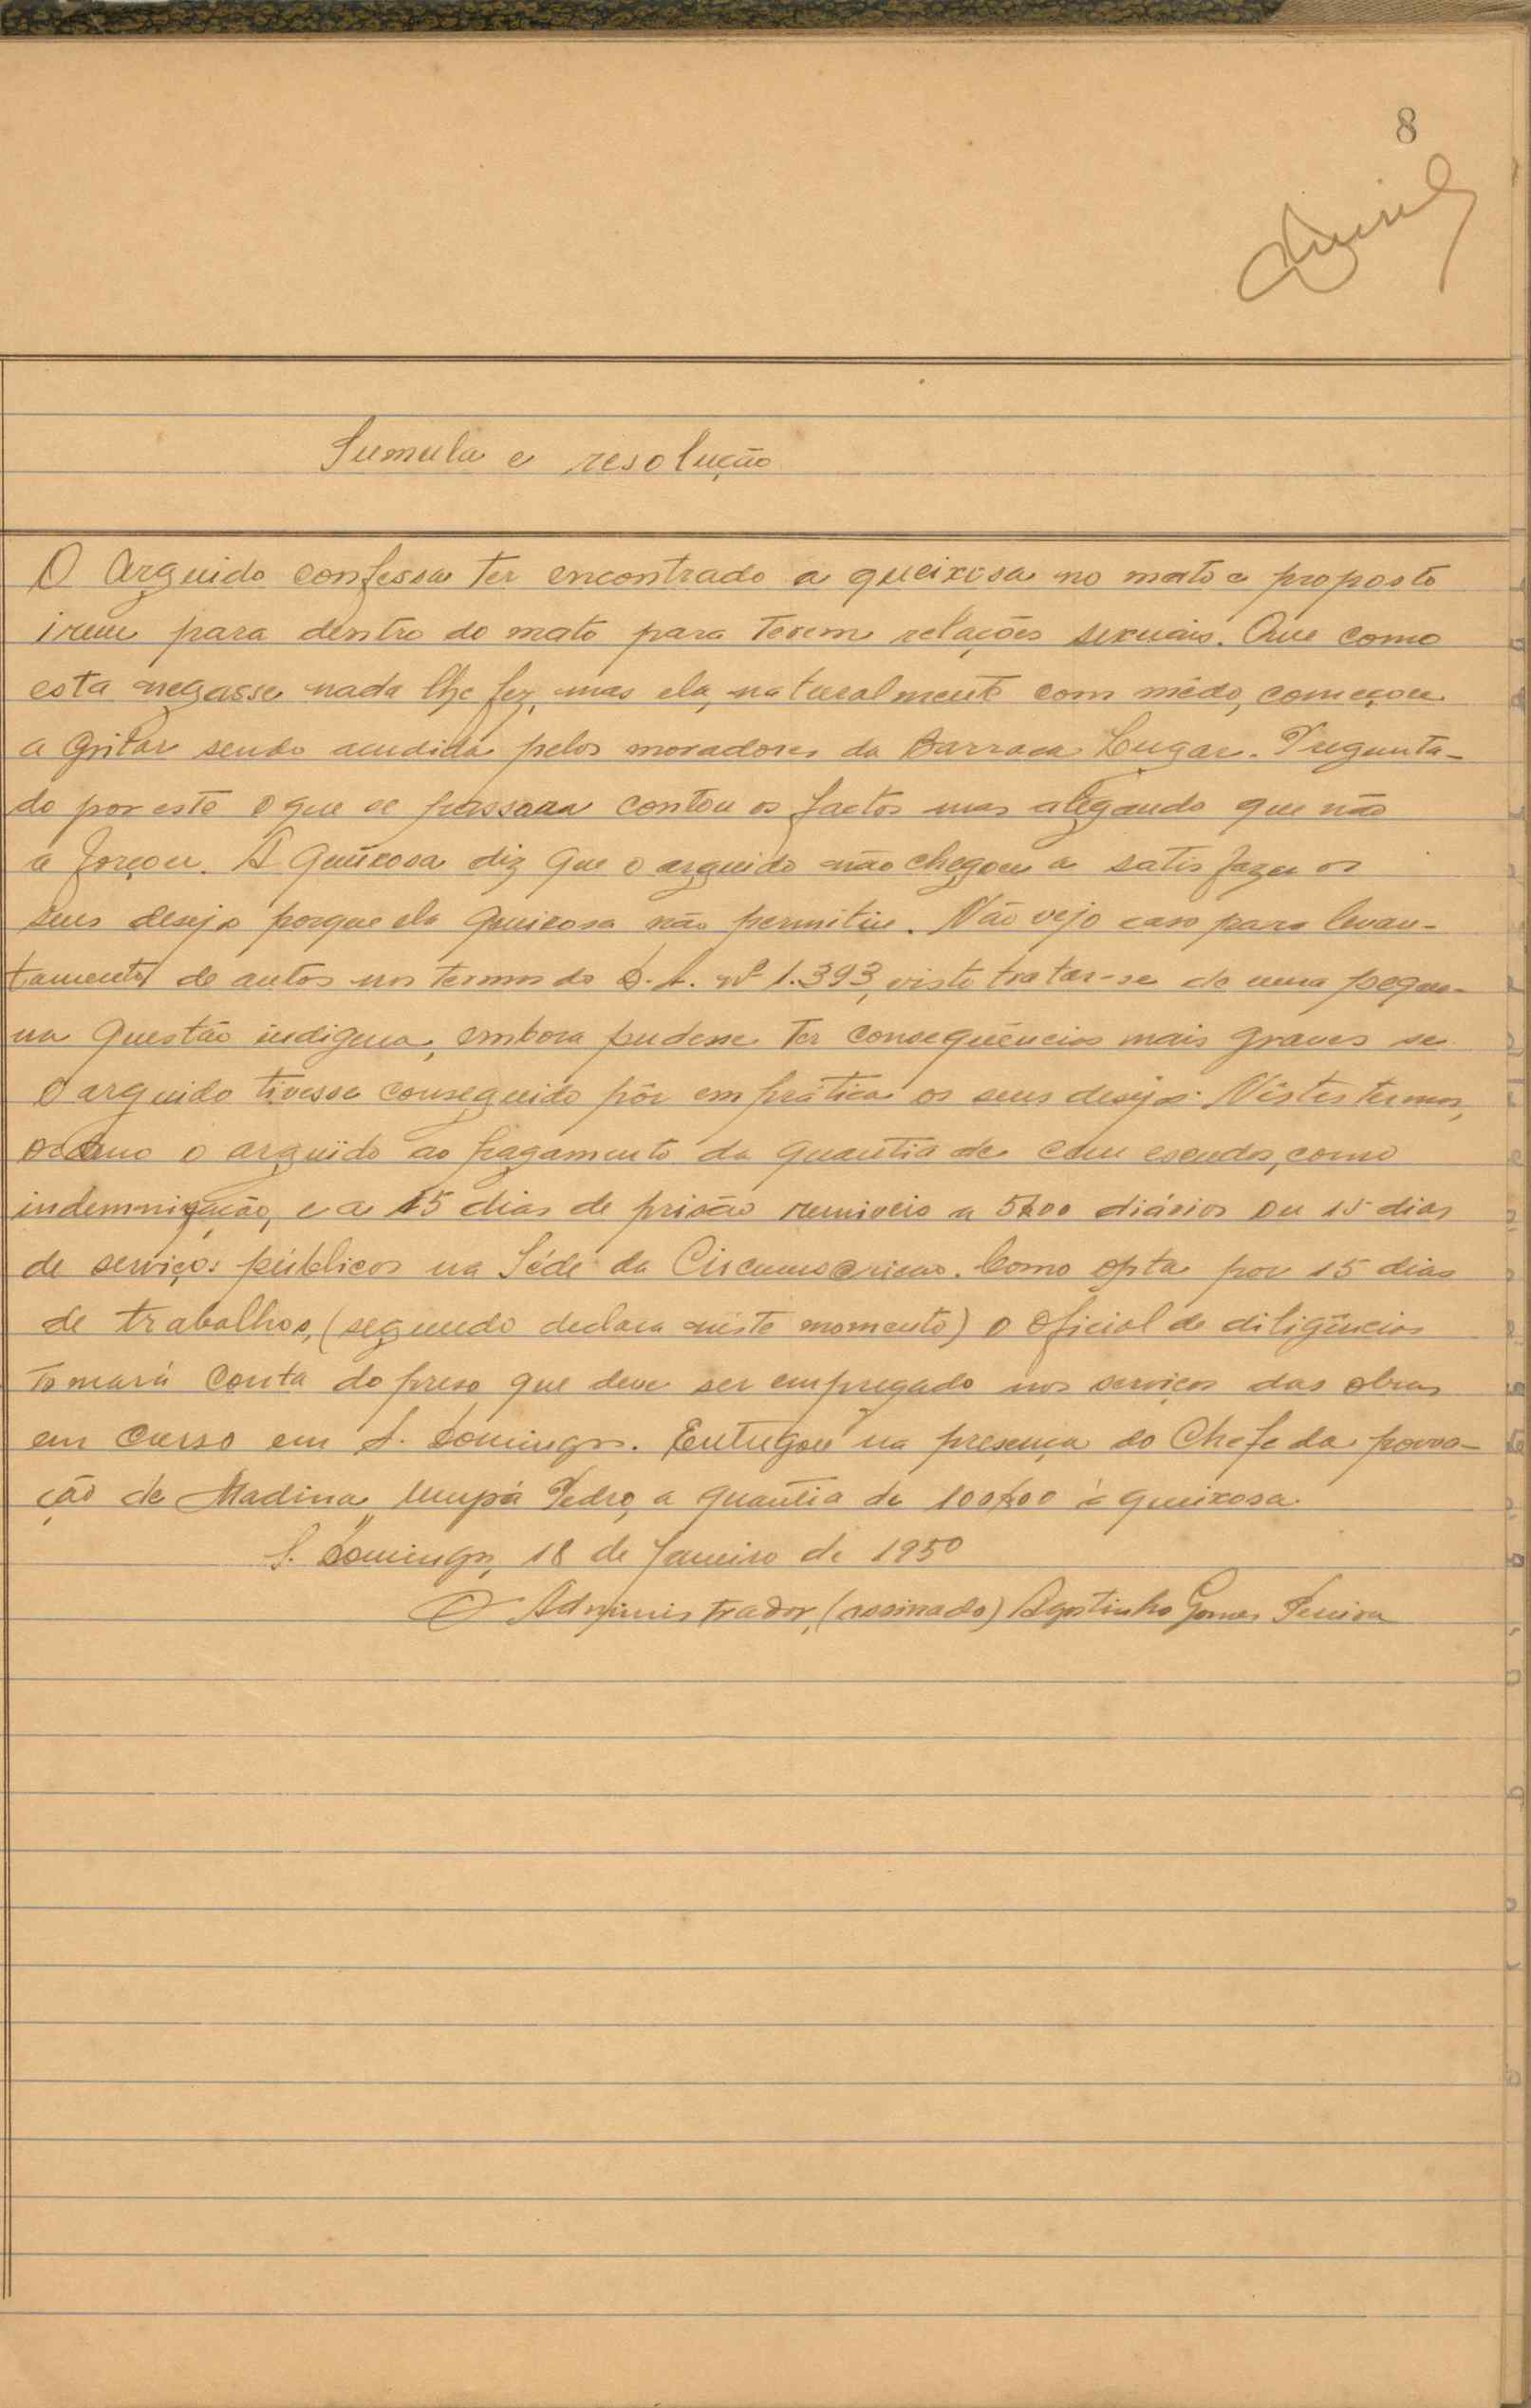 8
Sumula e resolução
O Arguido confessa ter encontrado a queixosa no mato e proposto
irem para dentro do mato para terem relações sexuais. Que como
esta negasse nada lhe fez, mas ela, naturalmente com mêdo, começou
a gritar sendo acudida pelos moradores da Barraca Lugar. Pregunta-
do por este o que se passara contou os factos mas alegando que não
a forçou. A Queixosa diz que o arguido não chegou a satisfazer os
seus desejo porque ela queixosa não permitiu. Não vejo caso para levan-
tamento de autos nos termos do D.L. nº 1.393, visto tratar-se de uma peque-
na questão indigena, embora pudesse ter consequências mais graves se
o arguido tivesse conseguido pôr em prática os seus desejos. Nêstes termos,
o arguido ao pagamento da quantia de cem escudos, como
indemnização, e a 15 dias de prisão remiveis a 5$00 diários ou 15 dias
de serviços públicos na Séde da. Como opta por 15 dias
de trabalhos, (segundo declara nêste momento) o Oficial de diligências
tomará conta do preso que deve ser empregado nos serviços das obras
em curso em S. Domingos. Entregou na presença do Chefe da povoa-
ção de Madina, Pedro, a quantia de 100$00 à queixosa.
S. Domingos, 18 de Janeiro de 1950
O Administrador, (assinado) Agostinho Gomes Pereira